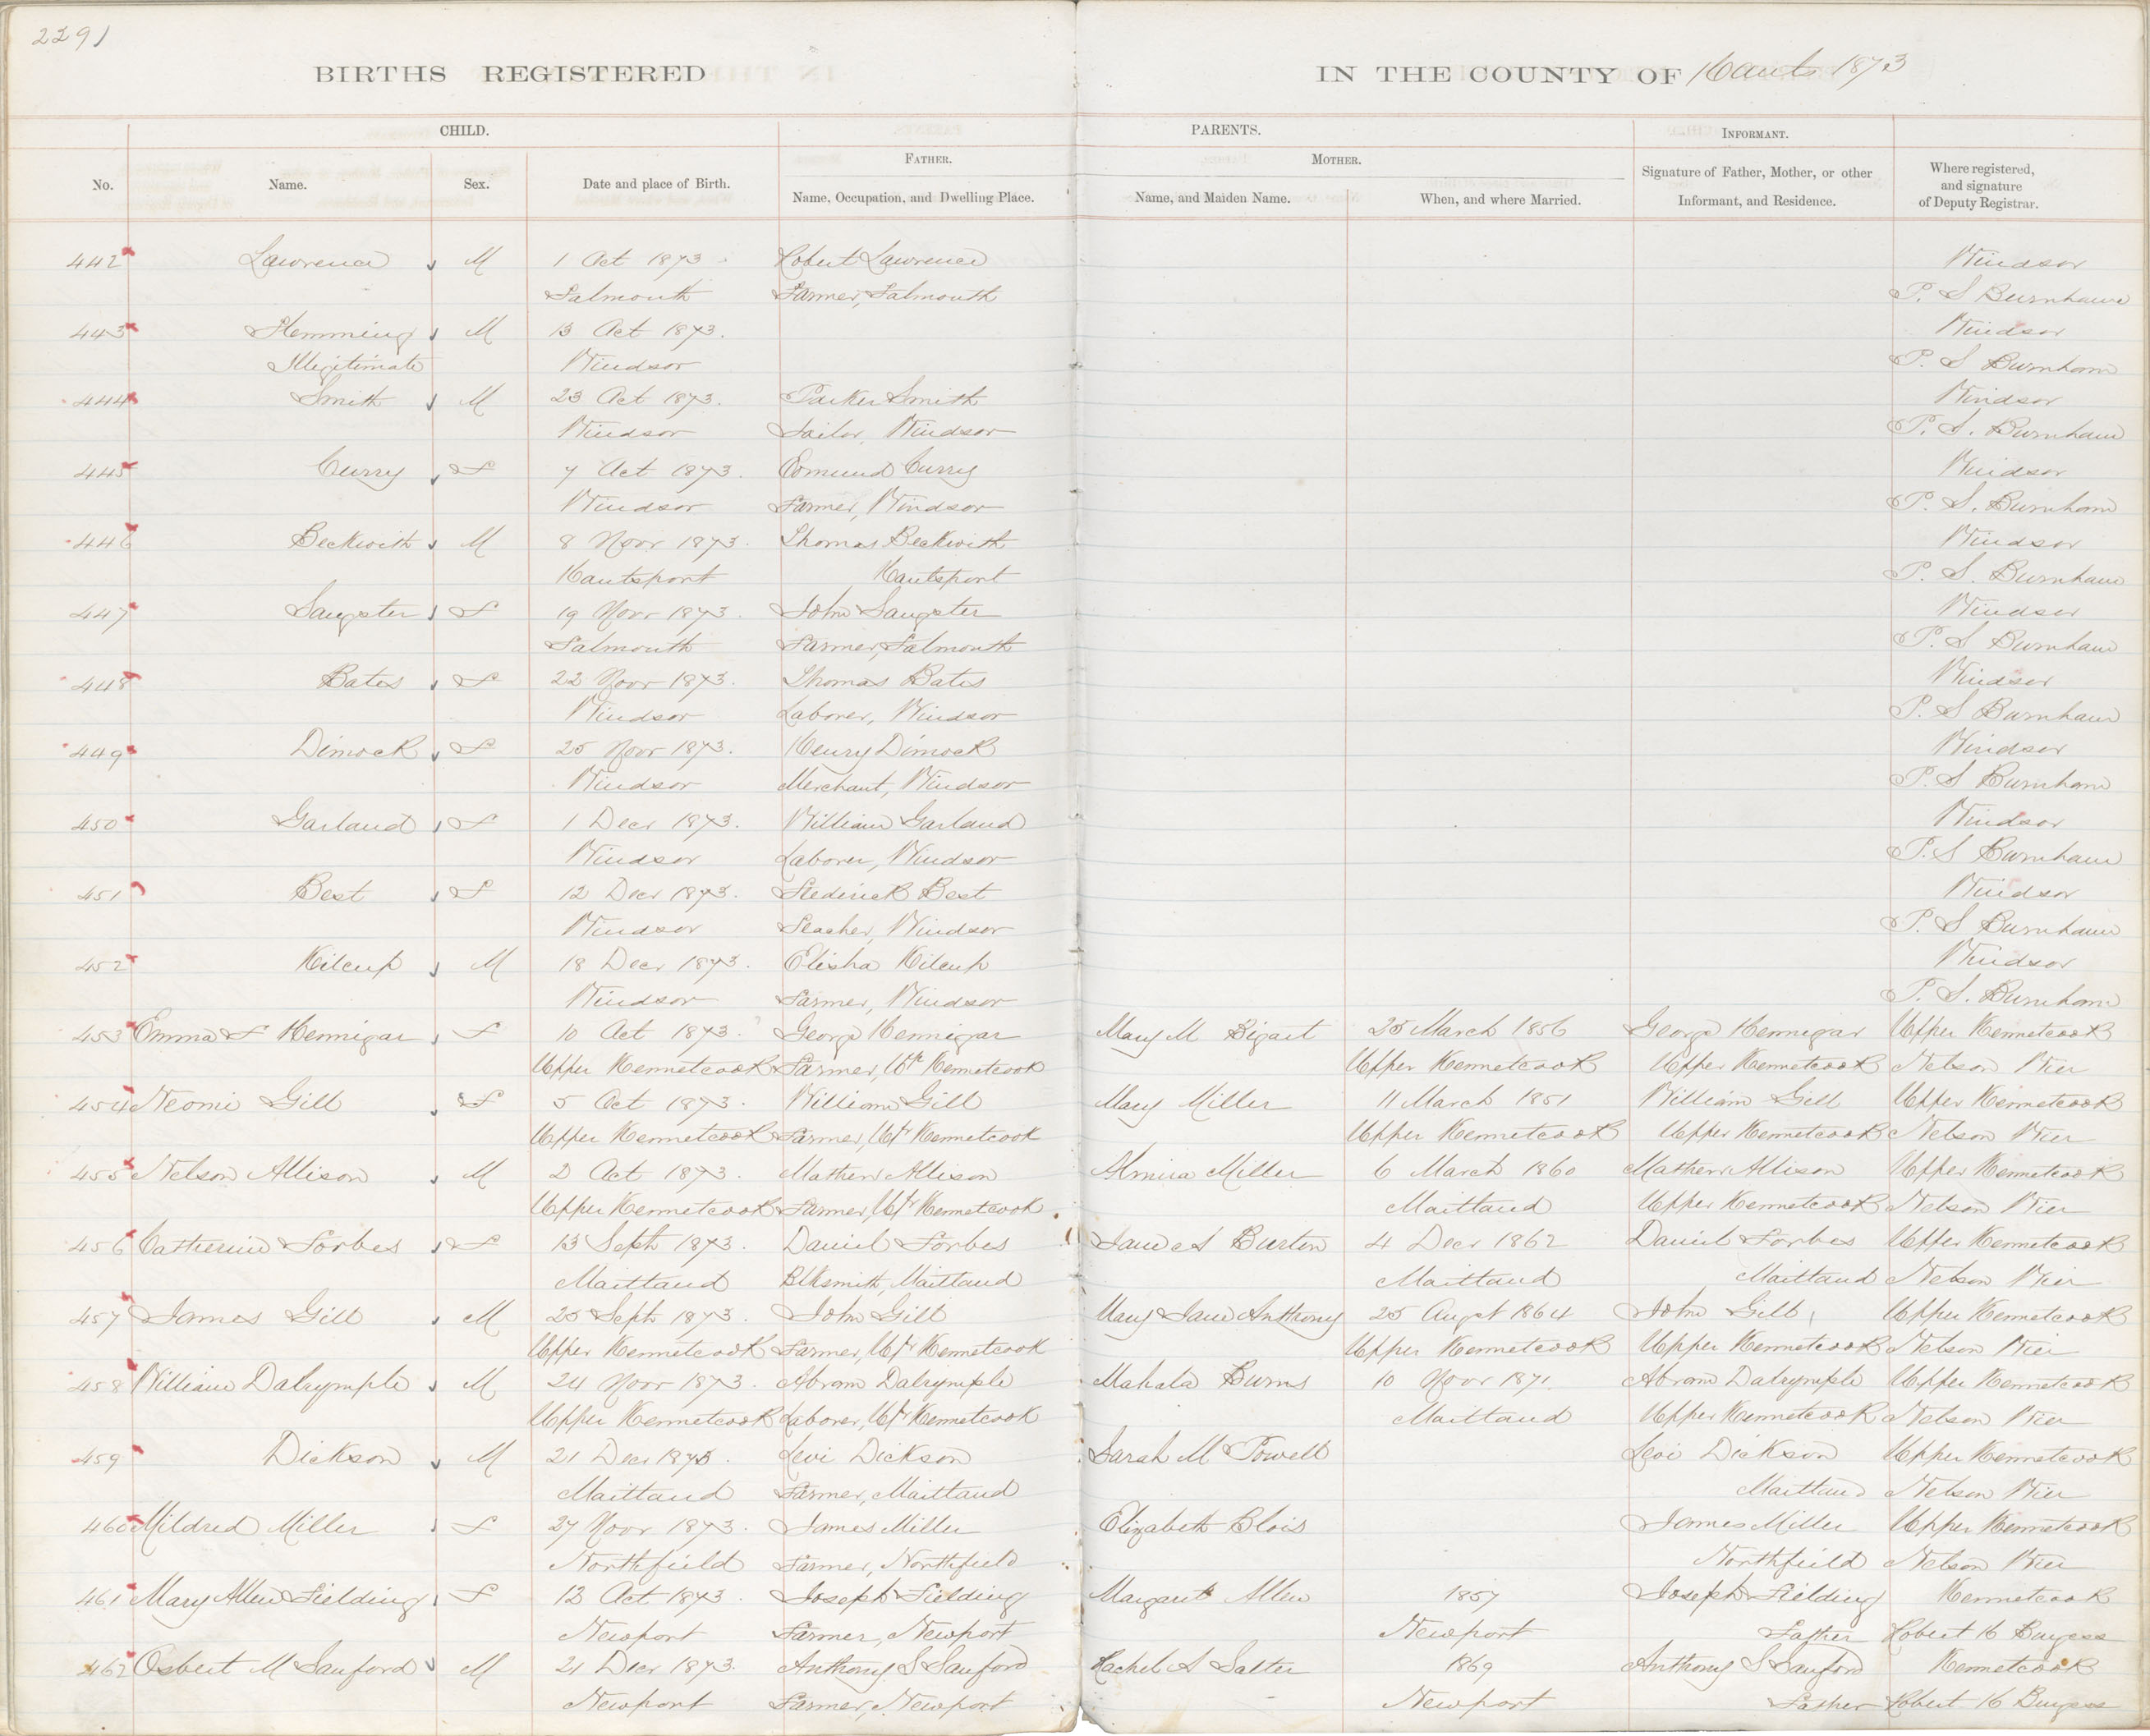 2291
BIRTHS REGISTERED IN THE COUNTY OF Hants 1873
CHILD. PARENTS. INFORMANT.
FATHER. MOTHER.
No. Name. Sex. Date and place of Birth. Name, Occupation, and Dwelling Place. Name, and Maiden Name. When, and where Married. Signature of Father, Mother, or other Informant, and Residence. Where registered, and signature of Deputy Registrar.
442 Lawrence M 1 Oct 1873 Robert Lawrence Windsor
Falmouth Farmer, Falmouth P. S Burnham
443 Hemming M 13 Oct 1873. Windsor
Illegitimate Windsor P. S Burnham
444 Smith M 23 Oct 1873. Parker Smith Windsor
Windsor Sailor, Windsor P. S. Burnham
445 Curry F 7 Oct 1873. Edmund Curry Windsor
Windsor Farmer, Windsor P. S. Burnham
446 Beckwith M 8 Novr 1873. Thomas Beckwith Windsor
Hantsport Hantsport P. S. Burnham
447 Sangster F 19 Novr 1873. John Sangster Windsor
Falmouth Farmer, Falmouth P. S Burnham
448 Bates F 22 Novr 1873. Thomas Bates Windsor
Windsor Laborer, Windsor P. S Burnham
449 Dimock F 25 Novr 1873. Henry Dimock Windsor
Windsor Merchant, Windsor P. S Burnham
450 Garland F 1 Decr 1873. William Garland Windsor
Windsor Laborer, Windsor P. S Burnham
451 Best F 12 Decr 1873. Frederick Best Windsor
Windsor Teacher, Windsor P. S Burnham
452 Kilcup M 18 Decr 1873. Elisha Kilcup Windsor
Windsor Farmer, Windsor P. S. Burnham
453 Emma F Hennigar F 10 Oct 1873. George Hennigar Mary M Bigart 25 March 1856 George Hennigar Upper Kennetcook
Upper Kennetcook Farmer, Upr Kennetcook Upper Kennetcook Upper Kennetcook Nelson Wier
454 Neomi Gill F 5 Oct 1873. William Gill Mary Miller 11 March 1851 William Gill Upper Kennetcook
Upper Kennetcook Farmer, Upr Kennetcook Upper Kennetcook Upper Kennetcook Nelson Wier
455 Nelson Allison M 2 Oct 1873. Mathew Allison Almira Miller 6 March 1860 Mathew Allison Upper Kennetcook
Upper Kennetcook Farmer, Upr Kennetcook. Maitland Upper Kennetcook Nelson Wier
456 Catherine Forbes F 13 Septr 1873. Daniel Forbes Jane A Burton 4 Decr 1862 Daniel Forbes Upper Kennetcook
Maitland Blksmith, Maitland Maitland Maitland Nelson Wier
457 James Gill M 25 Septr 1873. John Gill Mary Jane Anthony 25 Augst 1864 John Gill Upper Kennetcook
Upper Kennetcook Farmer, Upr Kennetcook Upper Kennetcook Upper Kennetcook Nelson Wier
458 William Dalrymple M 24 Novr 1873. Abram Dalrymple Mahala Burns 10 Novr 1871. Abram Dalrymple Upper Kennetcook
Upper Kennetcook Laborer, Upr Kennetcook Maitland Upper Kennetcook Nelson Wier
459 Dickson M 21 Decr 1873. Levi Dickson Sarah M Powell Levi Dickson Upper Kennetcook
Maitland Farmer, Maitland Maitland Nelson Wier
460 Mildred Miller F 27 Novr 1873. James Miller Elizabeth Blois James Miller Upper Kennetcook
Northfield Farmer, Northfield Northfield Nelson Wier
461 Mary Allen Fielding F 13 Oct 1873. Joseph Fielding Margaret Allen 1857 Joseph Fielding Kennetcook
Newport Farmer, Newport Newport Father Robert H Burgess
462 Osbert M Sanford M 21 Decr 1873. Anthony S Sanford Rachel A Salter 1869 Anthony S Sanford Kennetcook
Newport Farmer, Newport Newport Father Robert H Burgess